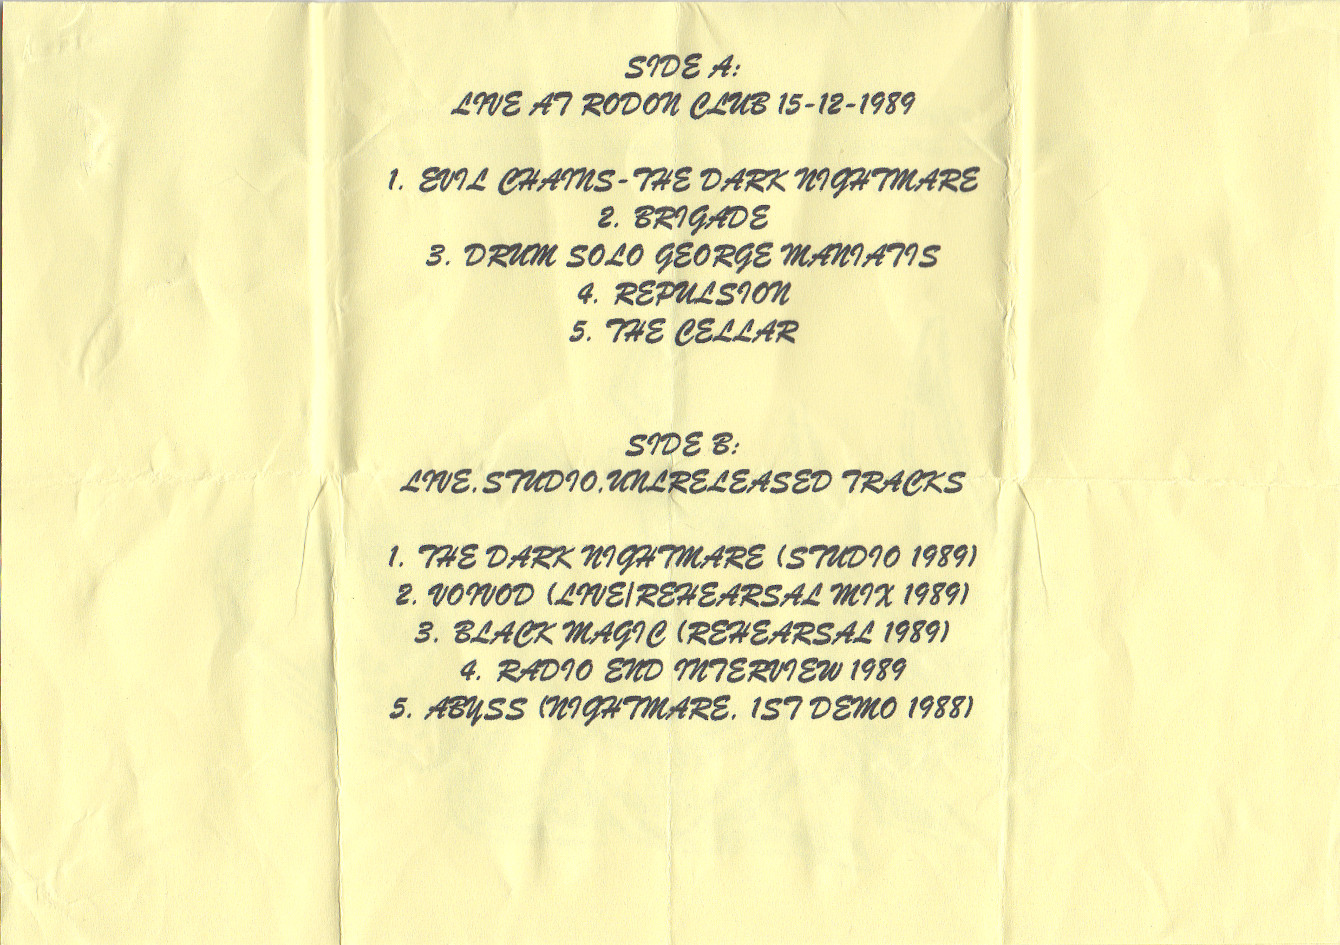 SIDE A:
LIVE AT RODON CLUB 15-12-1989
1. EVIL CHAINS-THE DARK NIGHTMARE
2. BRIGADE
3. DRUM SOLO GEORGE MANIATIS
4. REPULSION
5. THE CELLAR
SIDE B:
LIVE.STUDIO.UNLRELEASED TRACKS
1. THE DARK NIGHTMARE (STUDIO 1989)
2. VOIVOD (LIVE/REHEARSAL MIX 1989)
3. BLACK MAGIC (REHEARSAL 1989)
4. RADIO END INTERVIEW 1989
5. ABYSS (NIGHTMARE. 1ST DEMO 1988)